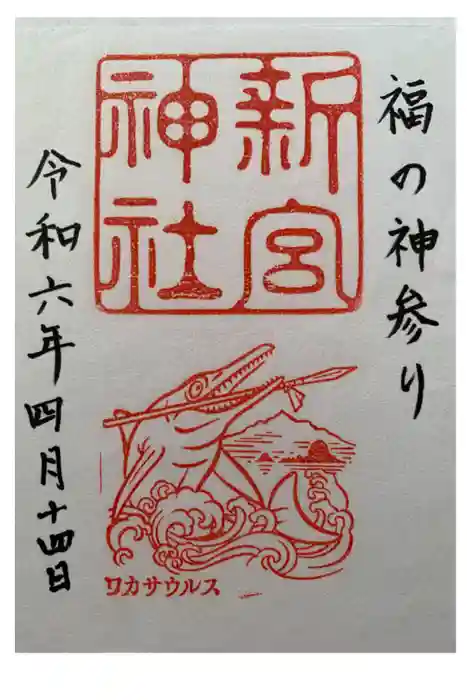 福の神参り
新宮
神社
ワカサウルス
令和六年四月十四日